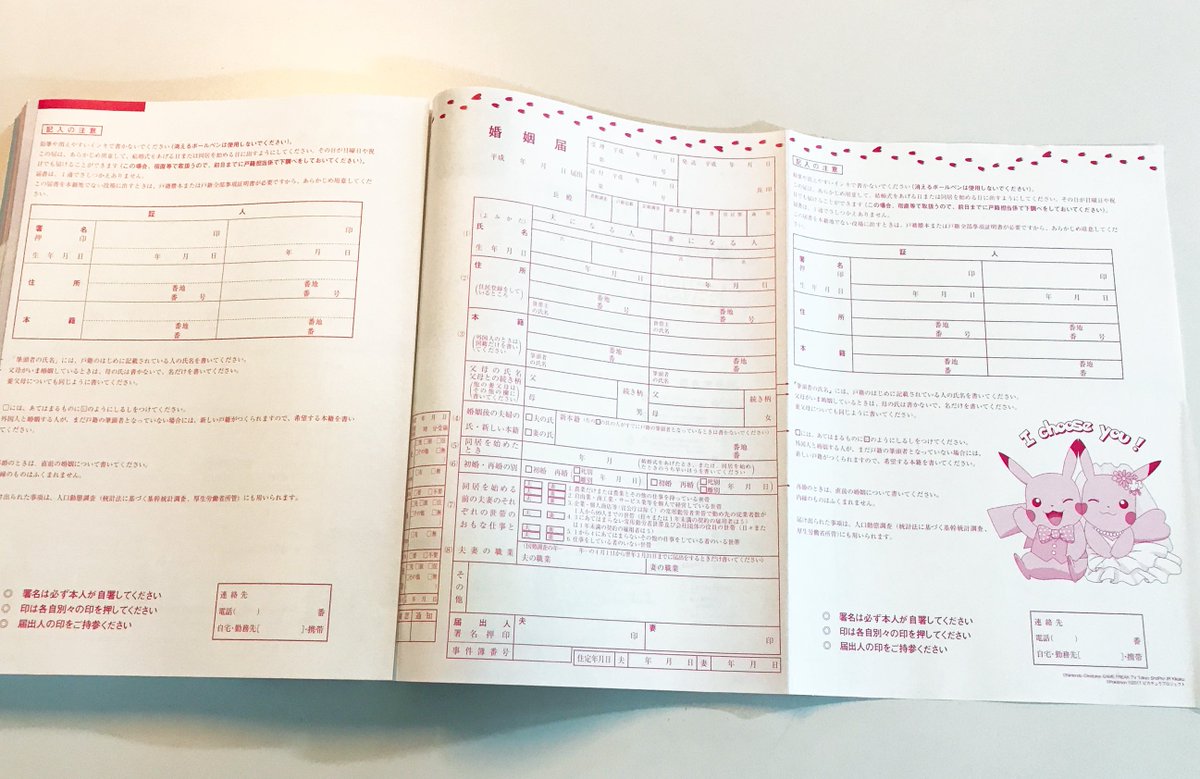 記入の注意
鉛筆や消えやすいインキで書かないでください(消えるボールペンは使用しないでください)。
この届は、あらかじめ用意して、結婚式をあげる日または同居を始める日に出すようにしてください。その日が日曜日や祝
日でも届けることができます(この場合、宿直等で取扱うので、前日までに戸籍担当係で下調べをしておいてください)。
届書は、1通でさしつかえありません。
この届書を本籍地でない役場に出すときは、戸籍謄本または戸籍全部事項証明書が必要ですから、あらかじめ用意してくだ
さい。
証 人
署名 押印
印 印
生年月日
年 月 日 年 月 日
住所
番地 番 号 番地 番 号
本籍
番地 番 番地 番
「筆頭者の氏名」には、戸籍のはじめに記載されている人の氏名を書いてください。
父母がいま婚姻しているときは、母の氏は書かないで、名だけを書いてください。
養父母についても同じように書いてください。
□には、あてはまるものに☑のようにしるしをつけてください。
外国人と婚姻する人が、まだ戸籍の筆頭者となっていない場合には、新しい戸籍がつくられますので、希望する本籍を書い
てください。
再婚のときは、直前の婚姻について書いてください。
内縁のものはふくまれません。
け出られた事項は、人口動態調査(統計法に基づく基幹統計調査、厚生労働省所管)にも用いられます。
◎ 署名は必ず本人が自署してください
◎ 印は各自別々の印を押してください
◎ 届出人の印をご持参ください
連絡先
電話( ) 番
自宅・勤務先[ ]・携帯
婚姻届
平成 年 月 日届出
長 殿
受理 平成 年 月 日
第 号
送付 平成 年 月 日
第 号
発送 平成 年 月 日
長印
(よみかた)
夫になる人 妻になる人
(1) 氏名
氏 名 氏 名
生年月日
年 月 日 年 月 日
(2) 住所
(住民登録をしているところ)
番地 番 号 番地 番 号
世帯主の氏名 世帯主の氏名
(3) 本籍
(外国人のときは国籍だけを書いてください)
番地 番 番地 番
筆頭者の氏名 筆頭者の氏名
父母の氏名
父母との続き柄
(他の養父母はその他の欄に書いてください)
父 続き柄 父 続き柄
母 男 母 女
(4) 婚姻後の夫婦の氏・新しい本籍
□夫の氏
□妻の氏
新本籍(左の☑の氏の人がすでに戸籍の筆頭者となっているときは書かないでください)
番地 番
(5) 同居を始めたとき
年 月
(結婚式をあげたとき、または、同居を始めたときのうち早いほうを書いてください)
(6) 初婚・再婚の別
□初婚 再婚(□死別 □離別 年 月 日) □初婚 再婚(□死別 □離別 年 月 日)
(7) 同居を始める前の夫妻のそれぞれの世帯のおもな仕事と
(8) 夫妻の職業
夫の職業 妻の職業
その他
届出人署名押印
夫 印 妻 印
事件簿番号
住定年月日 夫 年 月 日 妻 年 月 日
記入の注意
鉛筆や消えやすいインキで書かないでください(消えるボールペンは使用しないでください)。
この届は、あらかじめ用意して、結婚式をあげる日または同居を始める日に出すようにしてください。その日が日曜日や祝
日でも届けることができます(この場合、宿直等で取扱うので、前日までに戸籍担当係で下調べをしておいてください)。
届書は、1通でさしつかえありません。
この届書を本籍地でない役場に出すときは、戸籍謄本または戸籍全部事項証明書が必要ですから、あらかじめ用意してくだ
さい。
証 人
署名 押印
印 印
生年月日
年 月 日 年 月 日
住所
番地 番 号 番地 番 号
本籍
番地 番 番地 番
「筆頭者の氏名」には、戸籍のはじめに記載されている人の氏名を書いてください。
父母がいま婚姻しているときは、母の氏は書かないで、名だけを書いてください。
養父母についても同じように書いてください。
□には、あてはまるものに☑のようにしるしをつけてください。
外国人と婚姻する人が、まだ戸籍の筆頭者となっていない場合には、
新しい戸籍がつくられますので、希望する本籍を書いてください。
再婚のときは、直前の婚姻について書いてください。
内縁のものはふくまれません。
届け出られた事項は、人口動態調査(統計法に基づく基幹統計調査、
厚生労働省所管)にも用いられます。
I choose you!
◎ 署名は必ず本人が自署してください
◎ 印は各自別々の印を押してください
◎ 届出人の印をご持参ください
連絡先
電話( ) 番
自宅・勤務先[ ]・携帯